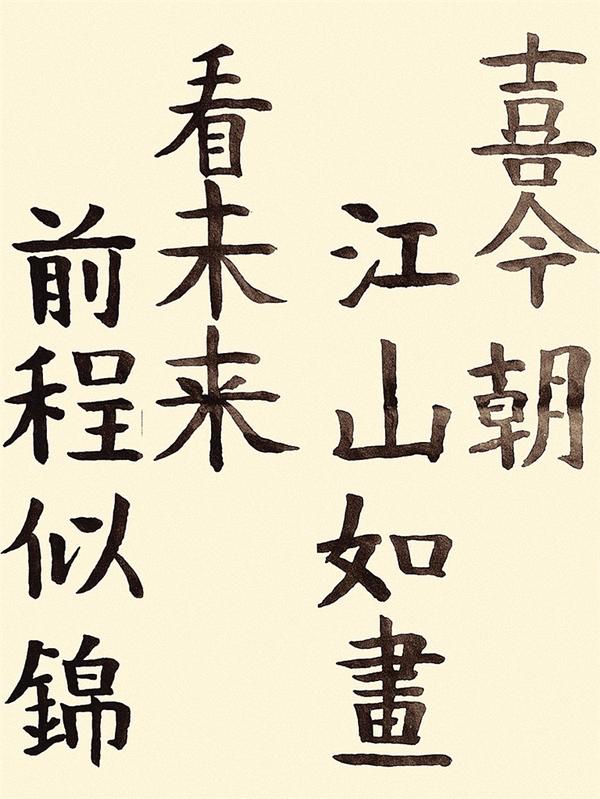 喜今朝
江山如畫
看未来
前程似錦